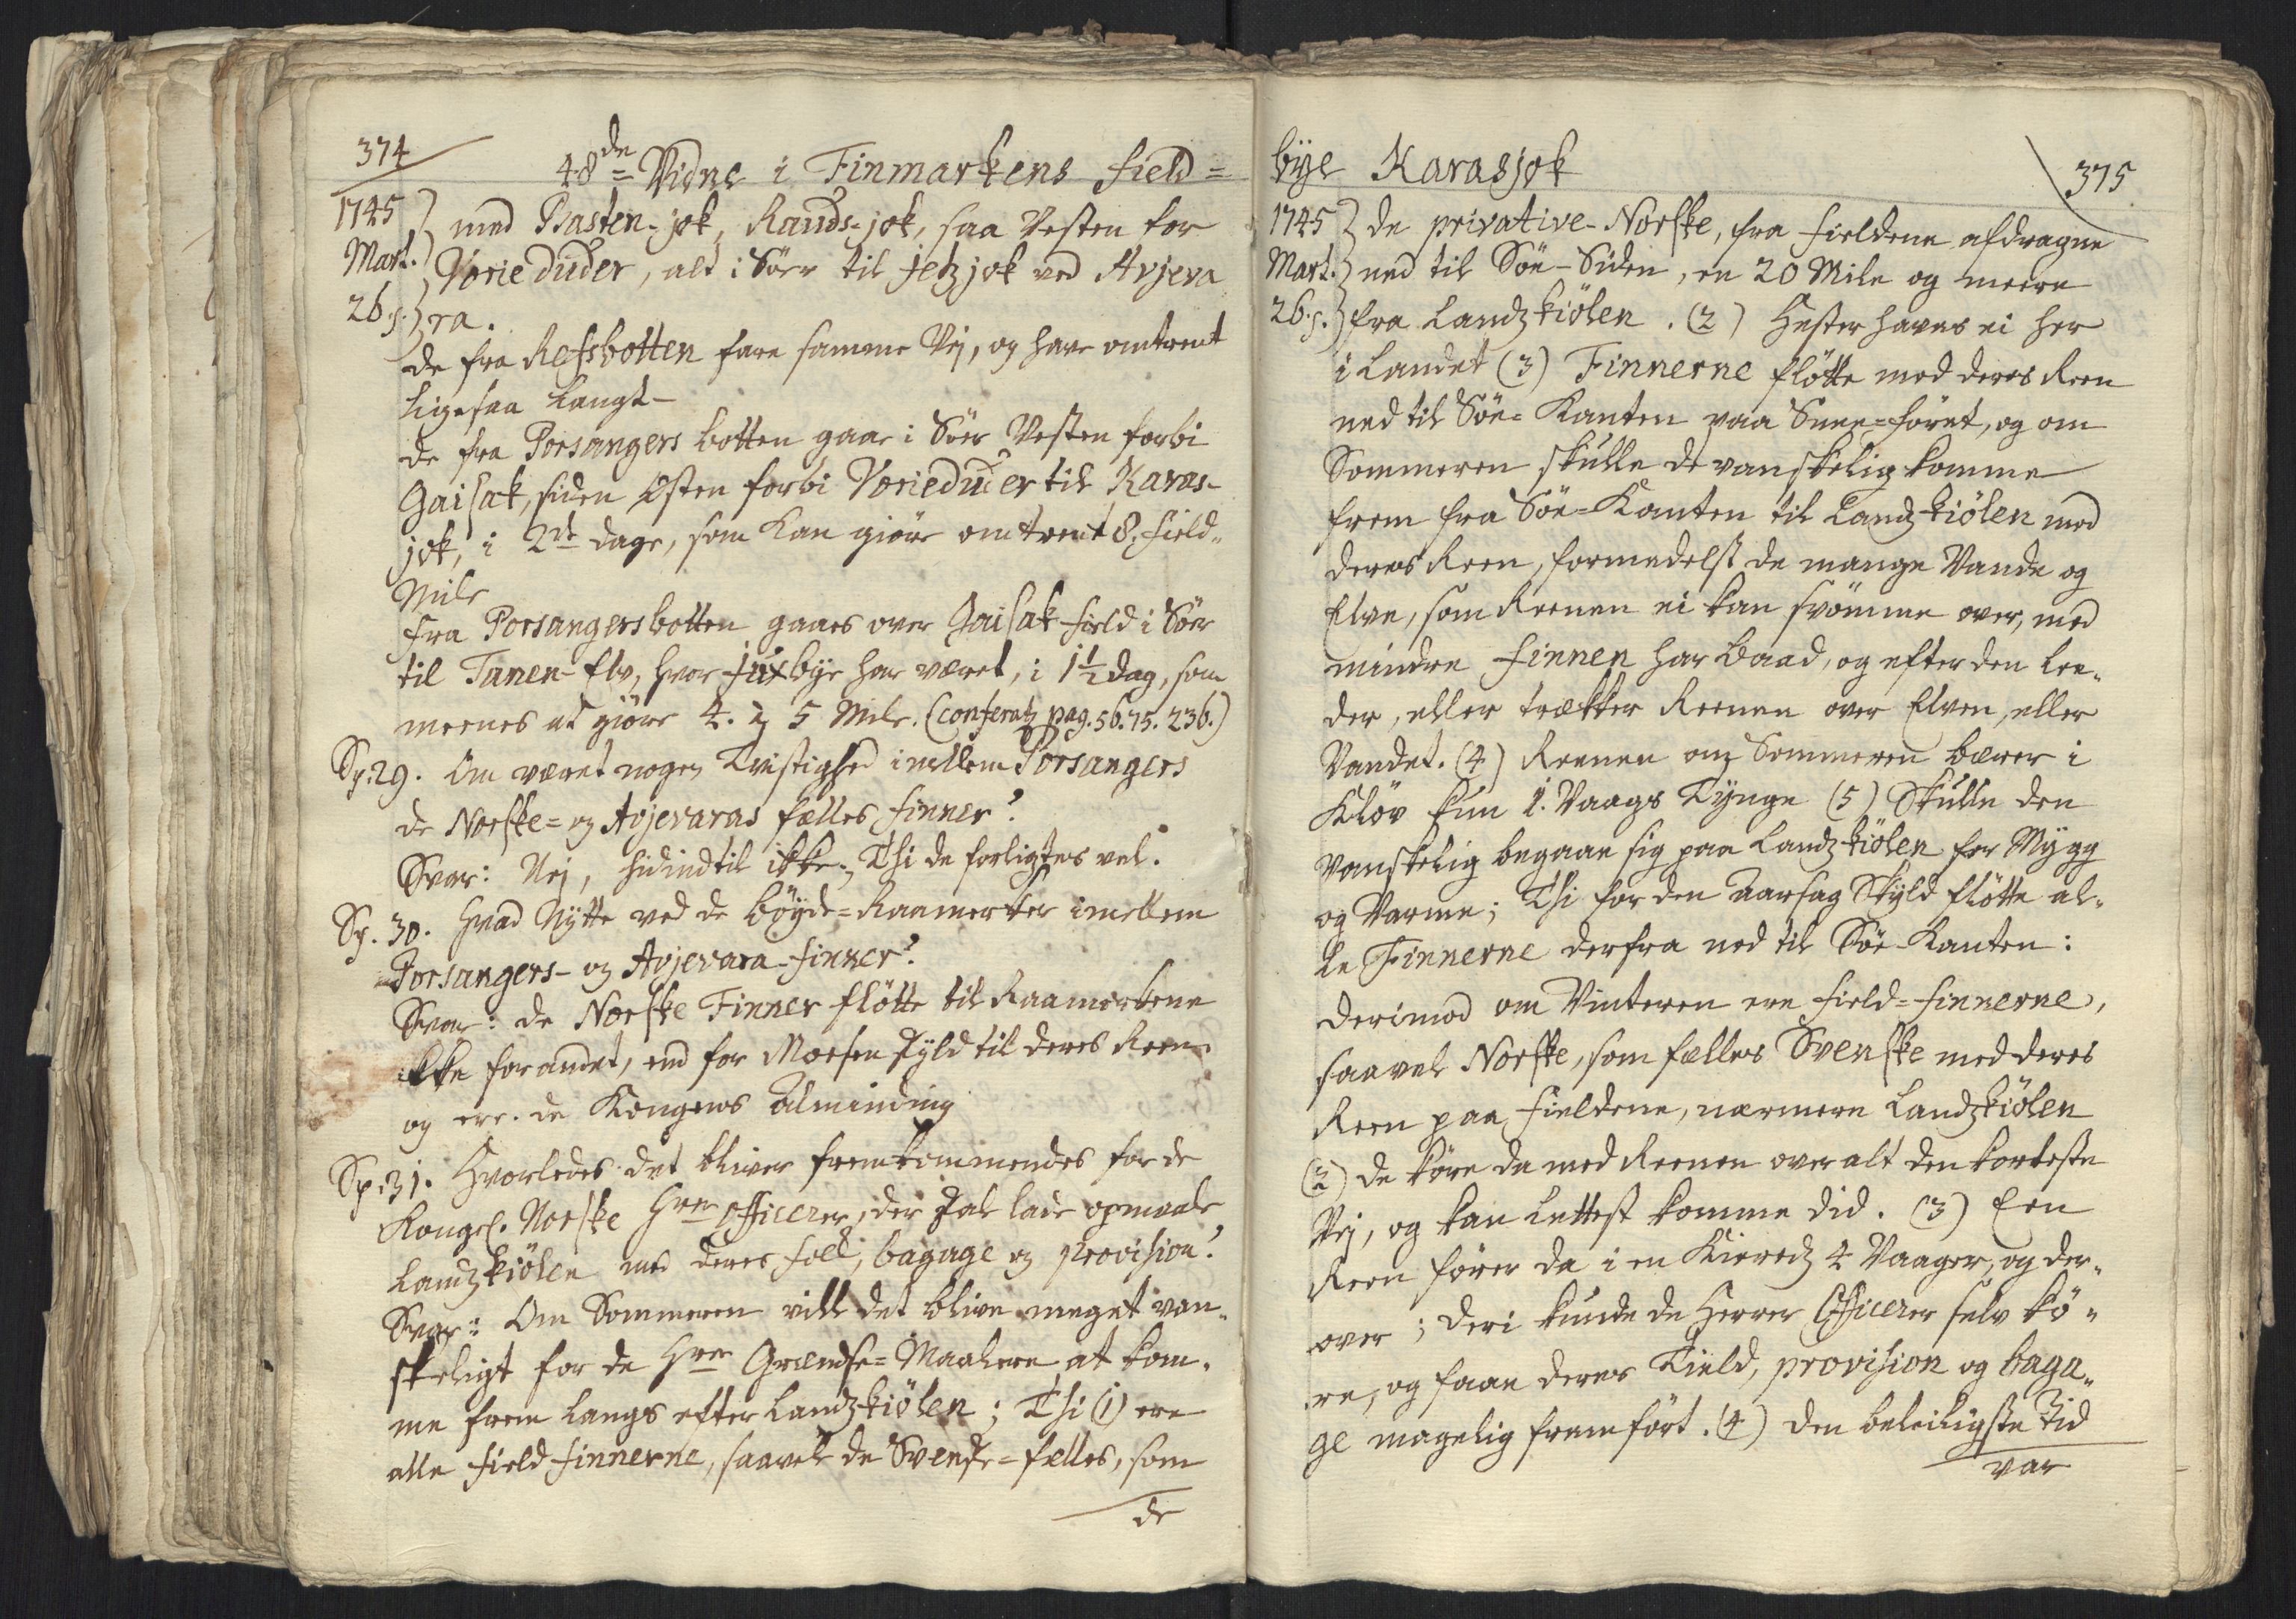 374
48de Vidne i Finmarkens Field=
1745 } med Basten-jok, Rauds-jok, saa Vesten for
Mart. } Vorieduder, alt i Sör til Jetzjok ved Avjeva
26.s. } ra.
de fra Refsbotten fare samme Vej, og have omtrent
ligesaa langt-
de fra Porsangers botten gaar i Sör Vesten forbi
Gaisak, siden Østen forbi Vorieduder til Karas-
jok, i 2de dage, som kan giöre omtrent 8, Field-
Mile
fra Porsangersbotten gaaes over Gaisak field i Sör
til Tanen-Elv, hvor Juxbye har været, i 1½ dag, som
meenes at giöre 4. à 5 Mile. (conferatz pag. 56. 75. 236.)
Sp. 29. Om været nogen Tvistighed imellem Porsangers
de Norske= og Avjevaras fælles Finner?
Svar: Nej, hidindtil ikke; Thi de forligtes vel.
Sp. 30. Hvad Nytte ved de böyde=Raamerker imellem
Porsangers- og Avjevara-Finner?
Svar: de Norske Finner flötte til Raamerkene
ikke for andet, end for Moesen skyld til deres Reen
og ere de Kongens Alminding
Sp. 31. Hvorledes det bliver fremkommendes for de
Kongel. Norske Hrer Officerer, der skal lade opmaale
Landzkiölen med deres folk, bagage og provision?
Svar: Om Sommeren vill det blive meget van-
skeligt for de Hrer Grændse=Maalere at kom-
me frem langs efter Landzkiölen; Thi (1) ere
alle Field Finnerne, saavel de Svenske=fælles, som
de
bye Karasjok
375
1745 } de privative-Norske, fra Fieldene afdragne
Mart. } ned til Söe-Siden, en 20 Mile og meere
26.s. } fra Landzkiölen. (2) Hester haves ei her
i Landet (3) Finnerne flötte med deres Reen
ned til Söe=Kanten paa Snee=föret, og om
Sommeren skulle de vanskelig komme
frem fra Söe=Kanten til Landzkiölen med
deres Reen, formedelst de mange Vande og
Elve, som Reenen ei kan svömme over, med
mindre Finnen har baad, og efter den lee-
der, eller trækker Reenen over Elven, eller
Vandet. (4) Reenen om Sommeren bærer i
Klöv kun 1. Vaags Tynge (5) Skulle den
vanskelig begaae sig paa Landzkiölen for Mygg
og Varme; Thi for den Aarsag Skyld flötte al-
le Finnerne derfra ned til Söe-Kanten:
Derimod om Vinteren ere Field=Finnerne,
saavel Norske, som fælles Svenske med deres
Reen paa Fieldene, nærmere Landzkiölen
(2) de köre da med Reenen overalt den korteste
Vej, og kan lettest komme did. (3) Een
Reen förer da i en Kieredz 4 Vaager, og der-
over; deri kunde de Herrer Officerer selv kö-
re, og faae deres Tield, provision og baga-
ge magelig fremfört. (4) den beleiligste Tid
var